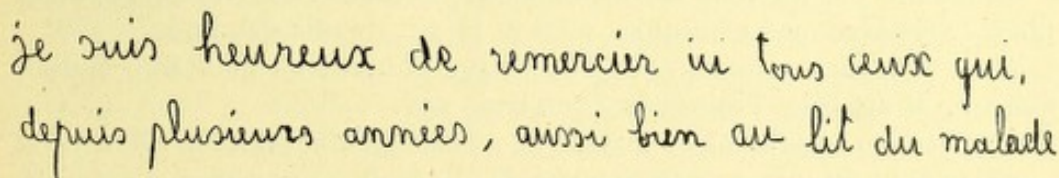 je suis heureux de remercier ici tous ceux qui,
depuis plusieurs années, aussi bien au lit du malade